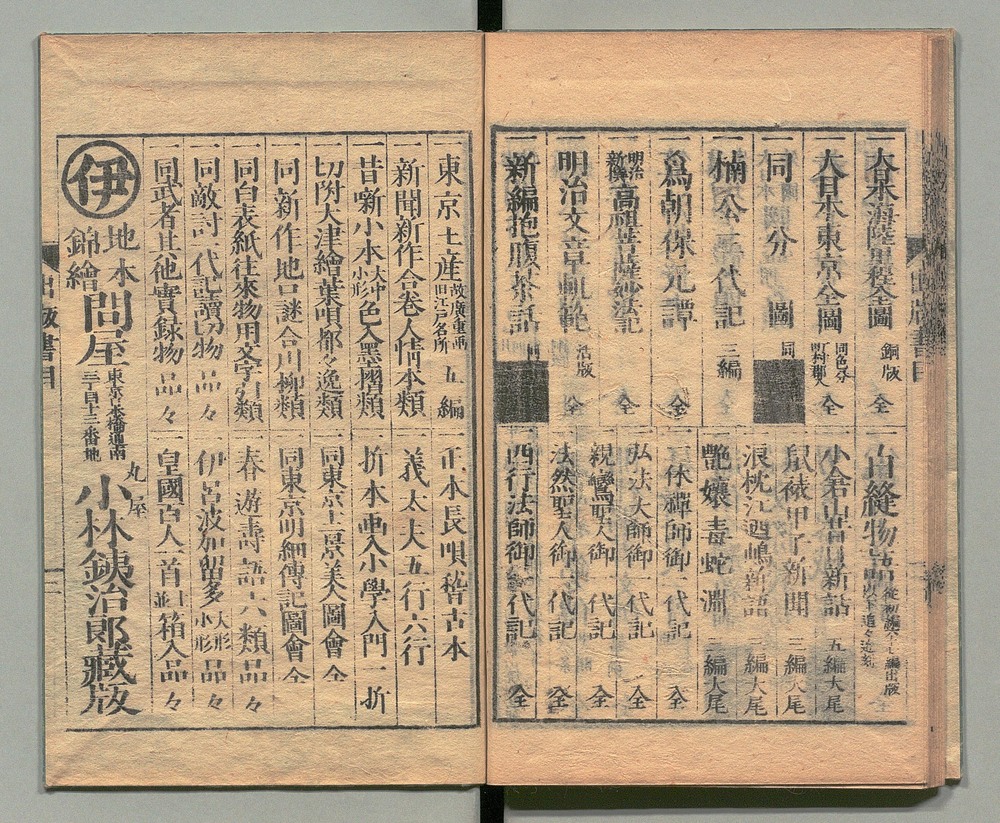 一大日本海陸里程全圖 銅版 全
一大日本東京全圖 同色分 町村郡入 全
一同 分圖 同
一楠公一代記 三編
一爲朝保元譚 全
一明治新撰高祖菩薩妙法記 全
一明治文章軌範 活版 全
一新編抱腹茶話 同
一白縫物語
一小倉山青樹新話 五編大尾
一鼠裱甲子新聞 三編大尾
一浪枕江の嶋新語 三編大尾
一艷孃毒蛇淵 三編大尾
一一休禪師御一代記 全
一弘法大師御一代記 全
一親鸞聖人御一代記 全
一法然聖人御一代記 全
一西行法師御一代記 全
出版書目
一東京土産 故廣重画 旧江戸名所 五編
一新聞新作合巻人情本類
一昔噺小本 大中小形 色入墨摺類
一切附大津繪葉唄都々逸類
一同新作地口謎合川柳類
一同白表紙往來物用文字引類
一同敵討一代記讀切物品々
一同武者其他實録物品々
一正本長唄稽古本
一義太夫五行六行
一折本画入小學入門一折
一同東京土景美人圖會 全
一同東京明細傳記圖會 全
一春遊壽語六類品々
一伊呂波加留多 大形 小形 品々
一皇國百人一首並ニ箱入品々
伊
地本
錦繪
問屋
東京日本橋通南
三丁目十三番地
丸屋
小林銕治郎藏版
出版書目